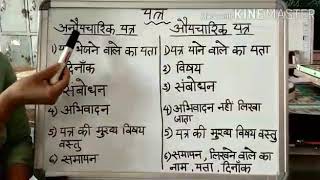 पत्र
अनौपचारिक पत्र
1) पत्र भेजने वाले का पता
दिनाँक
संबोधन
4) अभिवादन
5) पत्र की मुख्य विषय
वस्तु
6) समापन
औपचारिक पत्र
1) पत्र पाने वाले का पता
2) विषय
3) संबोधन
4) अभिवादन नहीं लिखा
जाता
5) पत्र की मुख्य विषय वस्तु
6) समापन, लिखने वाले का
नाम. पता. दिनाँक
KINEMASTER